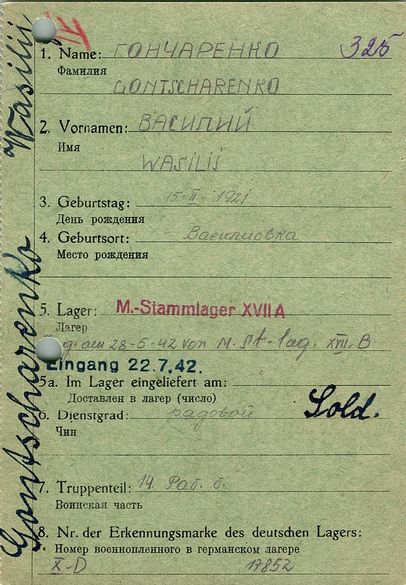 Gontscharenko Wasilij
325
1. Name: ГОНЧАРЕНКО
Фамилия
GONTSCHARENKO
2. Vornamen: ВАСИЛИЙ
Имя
WASILIJ
3. Geburtstag: 15-II-1921
День рождения
4. Geburtsort: Василиовка
Место рождения
5. Lager: M.-Stammlager XVII A
Лагер
am 28-5-42 von M. St-lag. XVII. B
Eingang 22.7.42.
5a. Im Lager eingeliefert am:
Доставлен в лагер (число)
6. Dienstgrad: рядовой Sold.
Чин
7. Truppenteil: 14 Раб. б.
Воинская часть
8. Nr. der Erkennungsmarke des deutschen Lagers:
Номер военнопленного в германском лагере
X-D